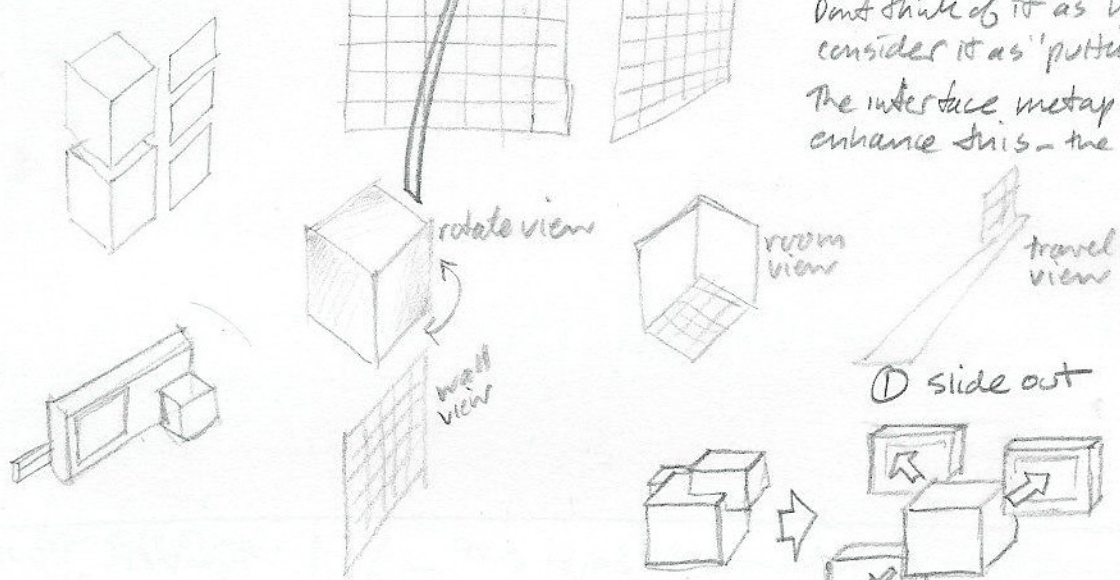 Dont think of it as
consider it as "putt
The interface metap
enhance this - the
rotate view
room
view
travel
view
wall
view
① slide out